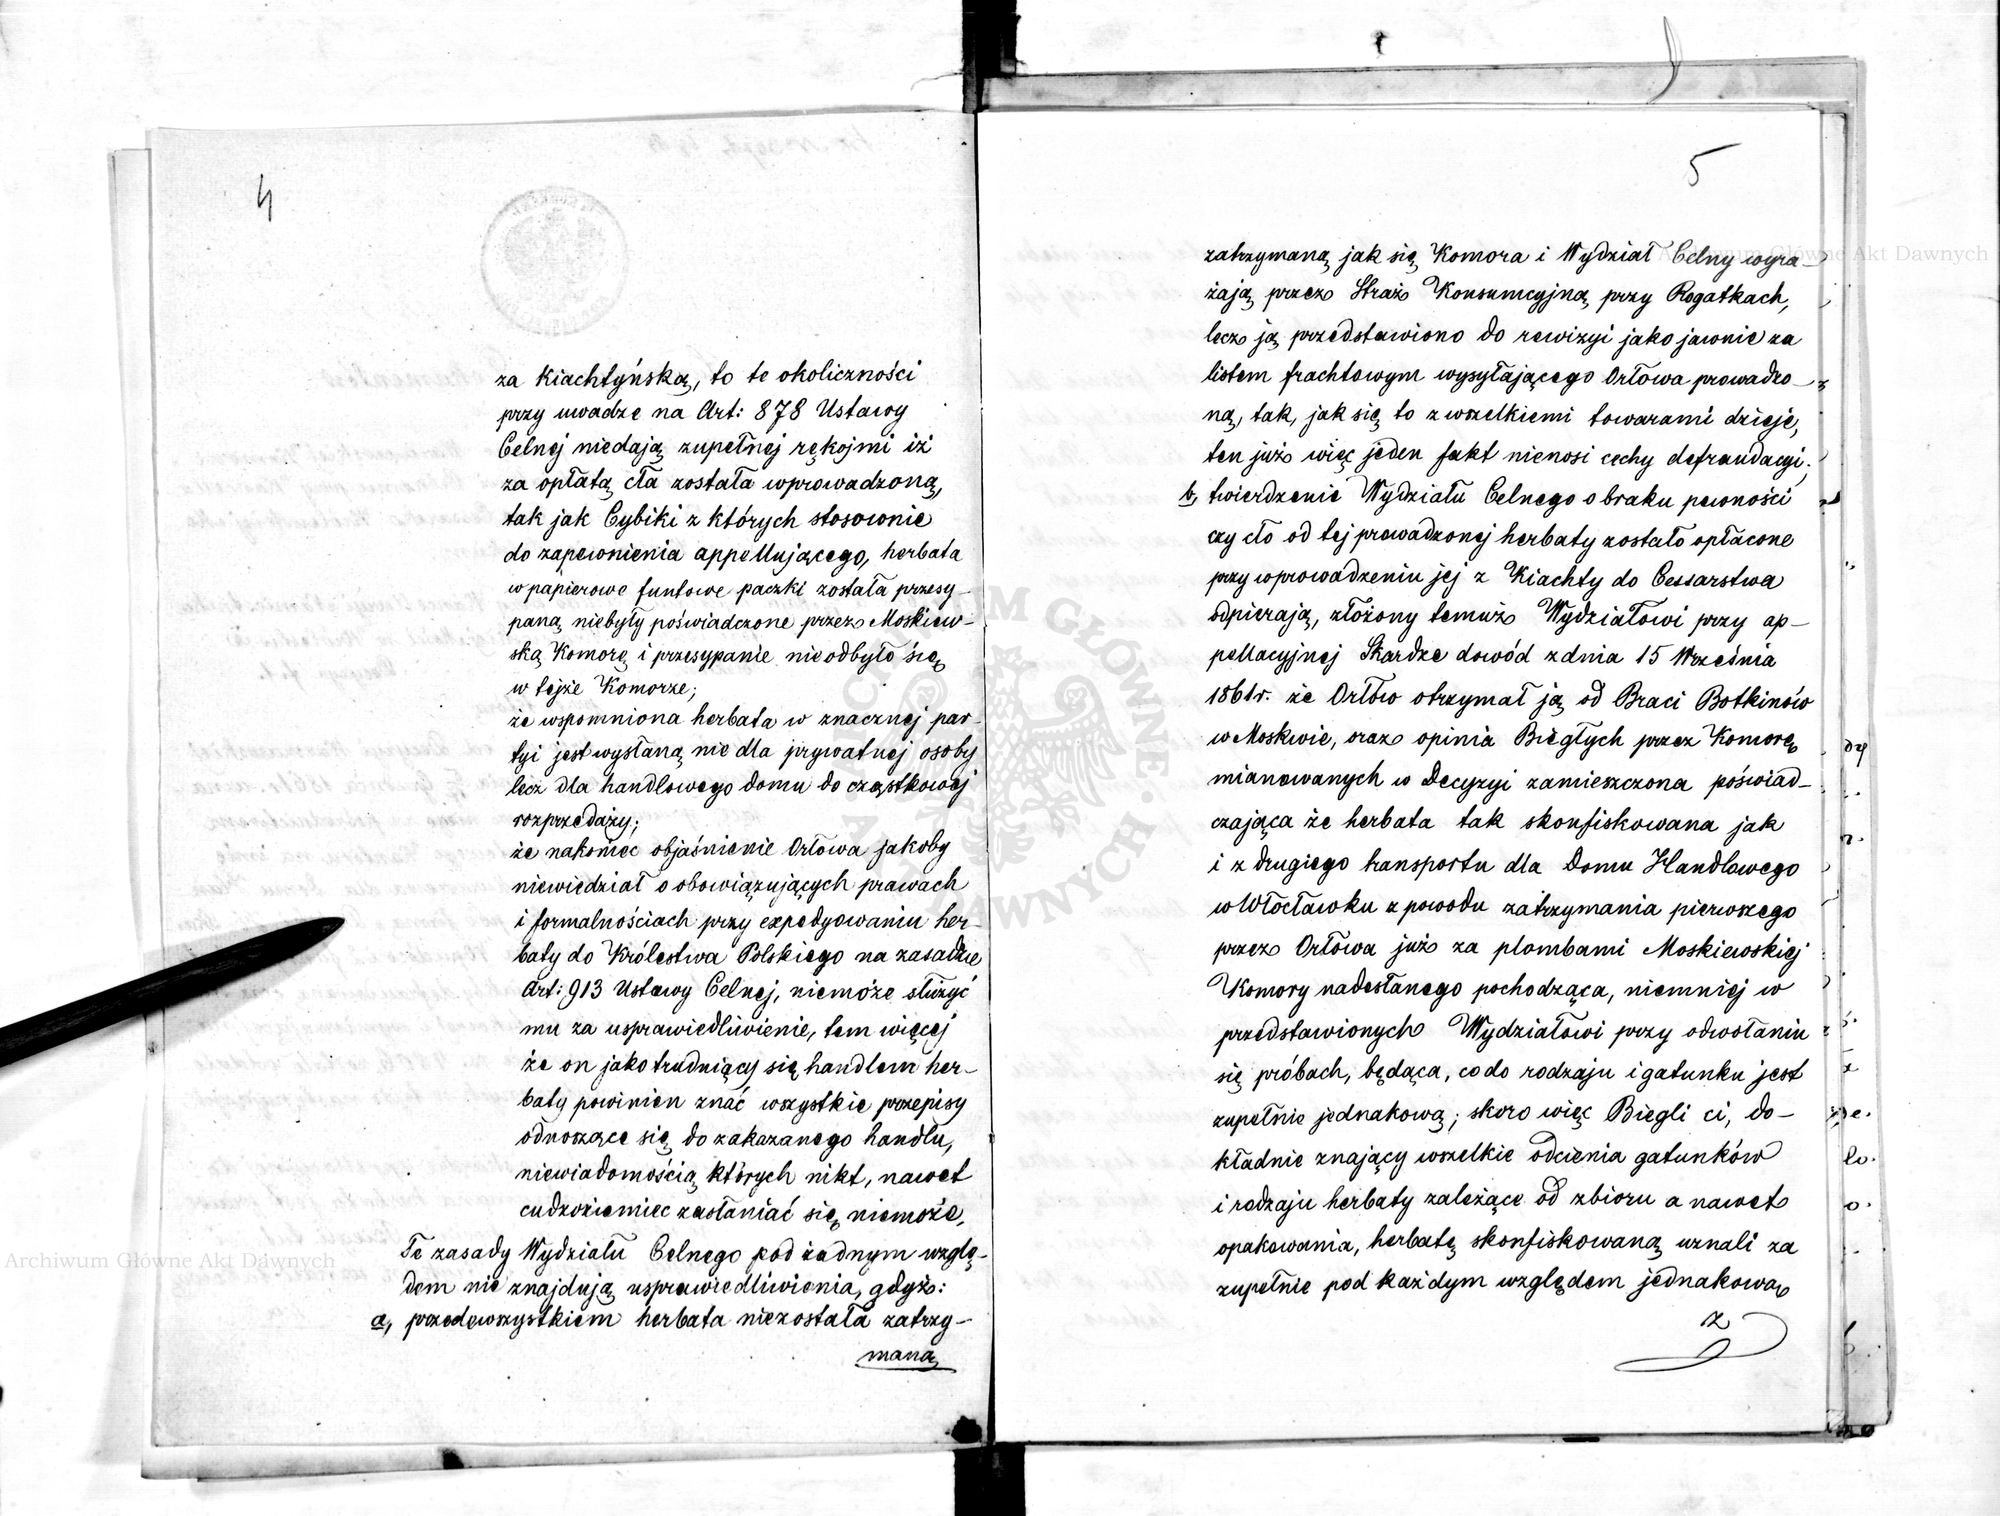 4
za Kiachtyńską, to te okoliczności
przy uwadze na Art: 878 Ustawy
Celnej niedają zupełnej rękojmi iż
za opłatą cła została wprowadzoną,
tak jak Cybiki z których stosownie
do zapewnienia appellującego, herbata
w papierowe funtowe paczki została przesy-
paną niebyły poświadczone przez Moskiew-
ską Komorę i przesypanie nieodbyło się
w tejże Komorze;
że wspomniona herbata w znacznej par-
tyi jest wysłaną nie dla prywatnej osoby
lecz dla handlowego domu do cząstkowej
rozprzedaży;
że nakoniec objaśnienie Orłowa jakoby
niewiedział o obowiązujących prawach
i formalnościach przy expedyowaniu her-
baty do Królestwa Polskiego na zasadzie
Art: 913 Ustawy Celnej, niemoże służyć
mu za usprawiedliwienie, tem więcej
że on jako trudniący się handlem her-
baty powinien znać wszystkie przepisy
odnoszące się do zakazanego handlu,
niewiadomością których nikt, nawet
cudzoziemiec zasłaniać się niemoże.
Te zasady Wydziału Celnego pod żadnym wzglę-
dem nie znajdują usprawiedliwienia, gdyż:
a, przedewszystkiem herbata niezostała zatrzy-
maną
5
zatrzymaną jak się Komora i Wydział Celny wyra-
żają przez Straż Konsumcyjną przy Rogatkach,
lecz ją przedstawiono do rewizyi jako jawnie za
listem frachtowym wysyłającego Orłowa prowadzo-
ną, tak, jak się to z wszelkiemi towarami dzieje,
ten już więc jeden fakt nienosi cechy defraudacyi;
b, twierdzenie Wydziału Celnego o braku pewności
czy cło od tej prowadzonej herbaty zostało opłacone
przy wprowadzeniu jej z Kiachty do Cessarstwa
odpierają, złożony temuż Wydziałowi przy ap-
pellacyjnej Skardze dowód z dnia 15 Września
1861 r. że Orłów otrzymał ją od Braci Botkinów
w Moskwie, oraz opinia Biegłych przez Komorę
mianowanych w Decyzyi zamieszczona poświad-
czająca że herbata tak skonfiskowana jak
i z drugiego transportu dla Domu Handlowego
w Włocławku z powodu zatrzymania pierwszego
przez Orłowa już za plombami Moskiewskiej
Komory nadesłanego pochodząca, niemniej w
przedstawionych Wydziałowi przy odwołaniu
się próbach, będąca, co do rodzaju i gatunku jest
zupełnie jednakową; skoro więc Biegli ci, do-
kładnie znający wszelkie odcienia gatunków
i rodzaju herbaty zależące od zbioru a nawet
opakowania, herbatę skonfiskowaną uznali za
zupełnie pod każdym względem jednakową
z
Archiwum Główne Akt Dawnych
Archiwum Główne Akt Dawnych
ARCHIWUM GŁÓWNE AKT DAWNYCH